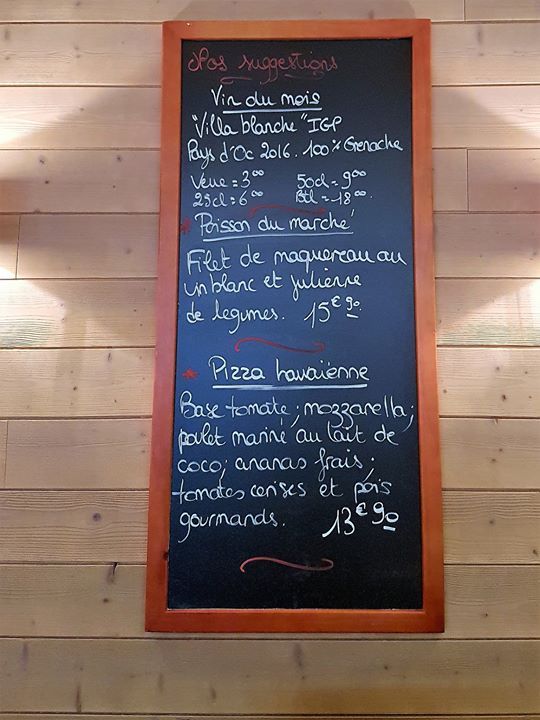 Nos suggestions
Vin du mois
"Villa blanche" IGP
Pays d'Oc 2016. 100% Grenache
Verre = 3⁰⁰ 50cl = 9⁰⁰
25cl = 6⁰⁰ Btl = 18⁰⁰.
* Poisson du marché
Filet de maquereau au
vin blanc et julienne
de legumes. 15€90
* Pizza hawaïenne
Base tomate; mozzarella;
poulet mariné au lait de
coco; ananas frais.
tomates cerises et pois
gourmands. 13€90